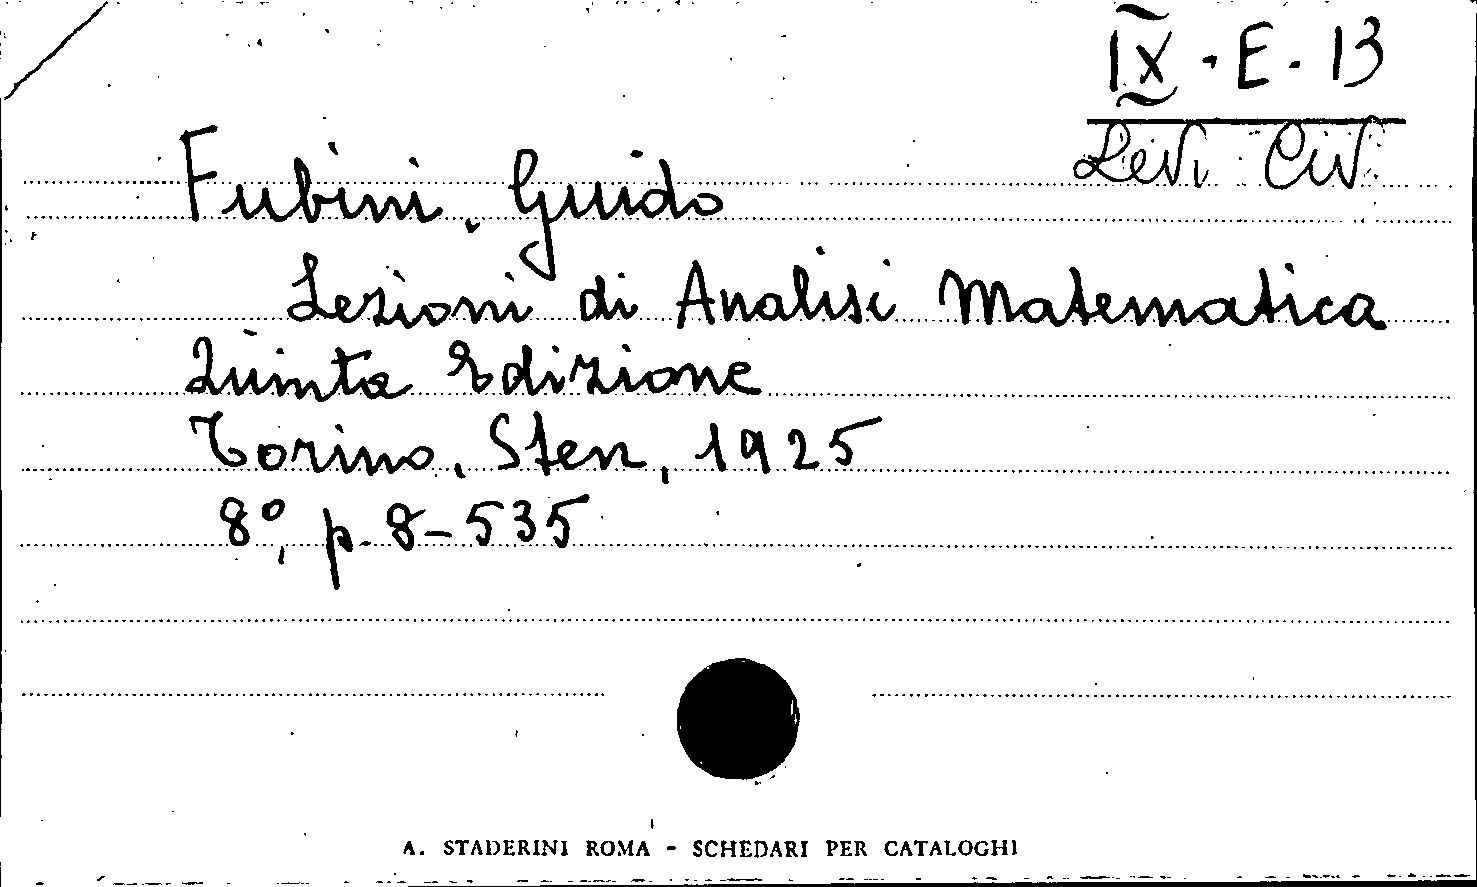 IX - E - 13
Levi Civ.
Fubini, Guido
Lezioni di Analisi Matematica
Quinta Edizione
Torino, Sten, 1925
8°, p. 8-535
A. STADERINI ROMA - SCHEDARI PER CATALOGHI